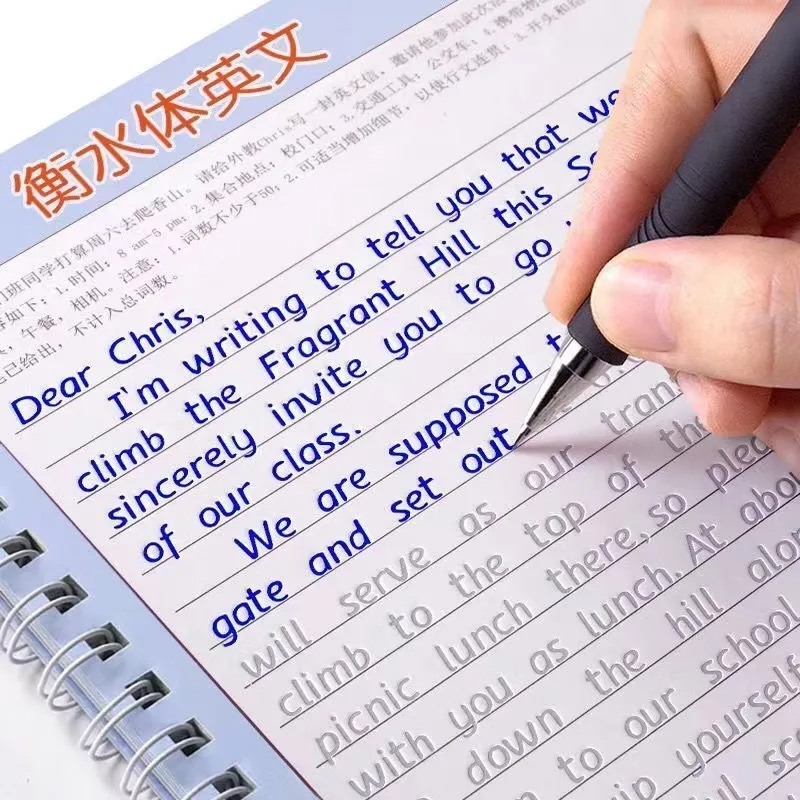 衡水体英文
班同学打算周六去爬香山。请给外教Chris写一封英文信，邀请他参加此次活
如下：1.时间：8 am-5 pm；2.集合地点：校门口；3.交通工具：公交车；4.携带物
午餐，相机。注意：1.词数不少于50；2.可适当增加细节，以使行文连贯；3.开头和结
已给出，不计入总词数。
Dear Chris,
I'm writing to tell you that we
climb the Fragrant Hill this
sincerely invite you to go
of our class.
We are supposed
gate and set out
will serve as our
climb to the top of
picnic lunch there, so
with you as lunch. At
down the hill
to our school
yourself